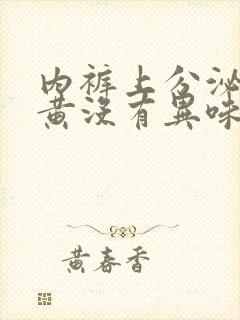 内裤上分泌
黄没有異味
黄春香